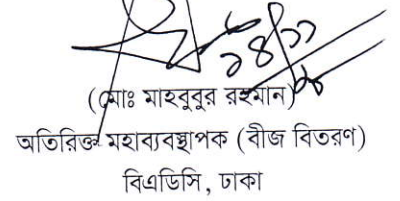 (মোঃ মাহবুবুর রহমান)
অতিরিক্ত মহাব্যবস্থাপক (বীজ বিতরণ)
বিএডিসি, ঢাকা